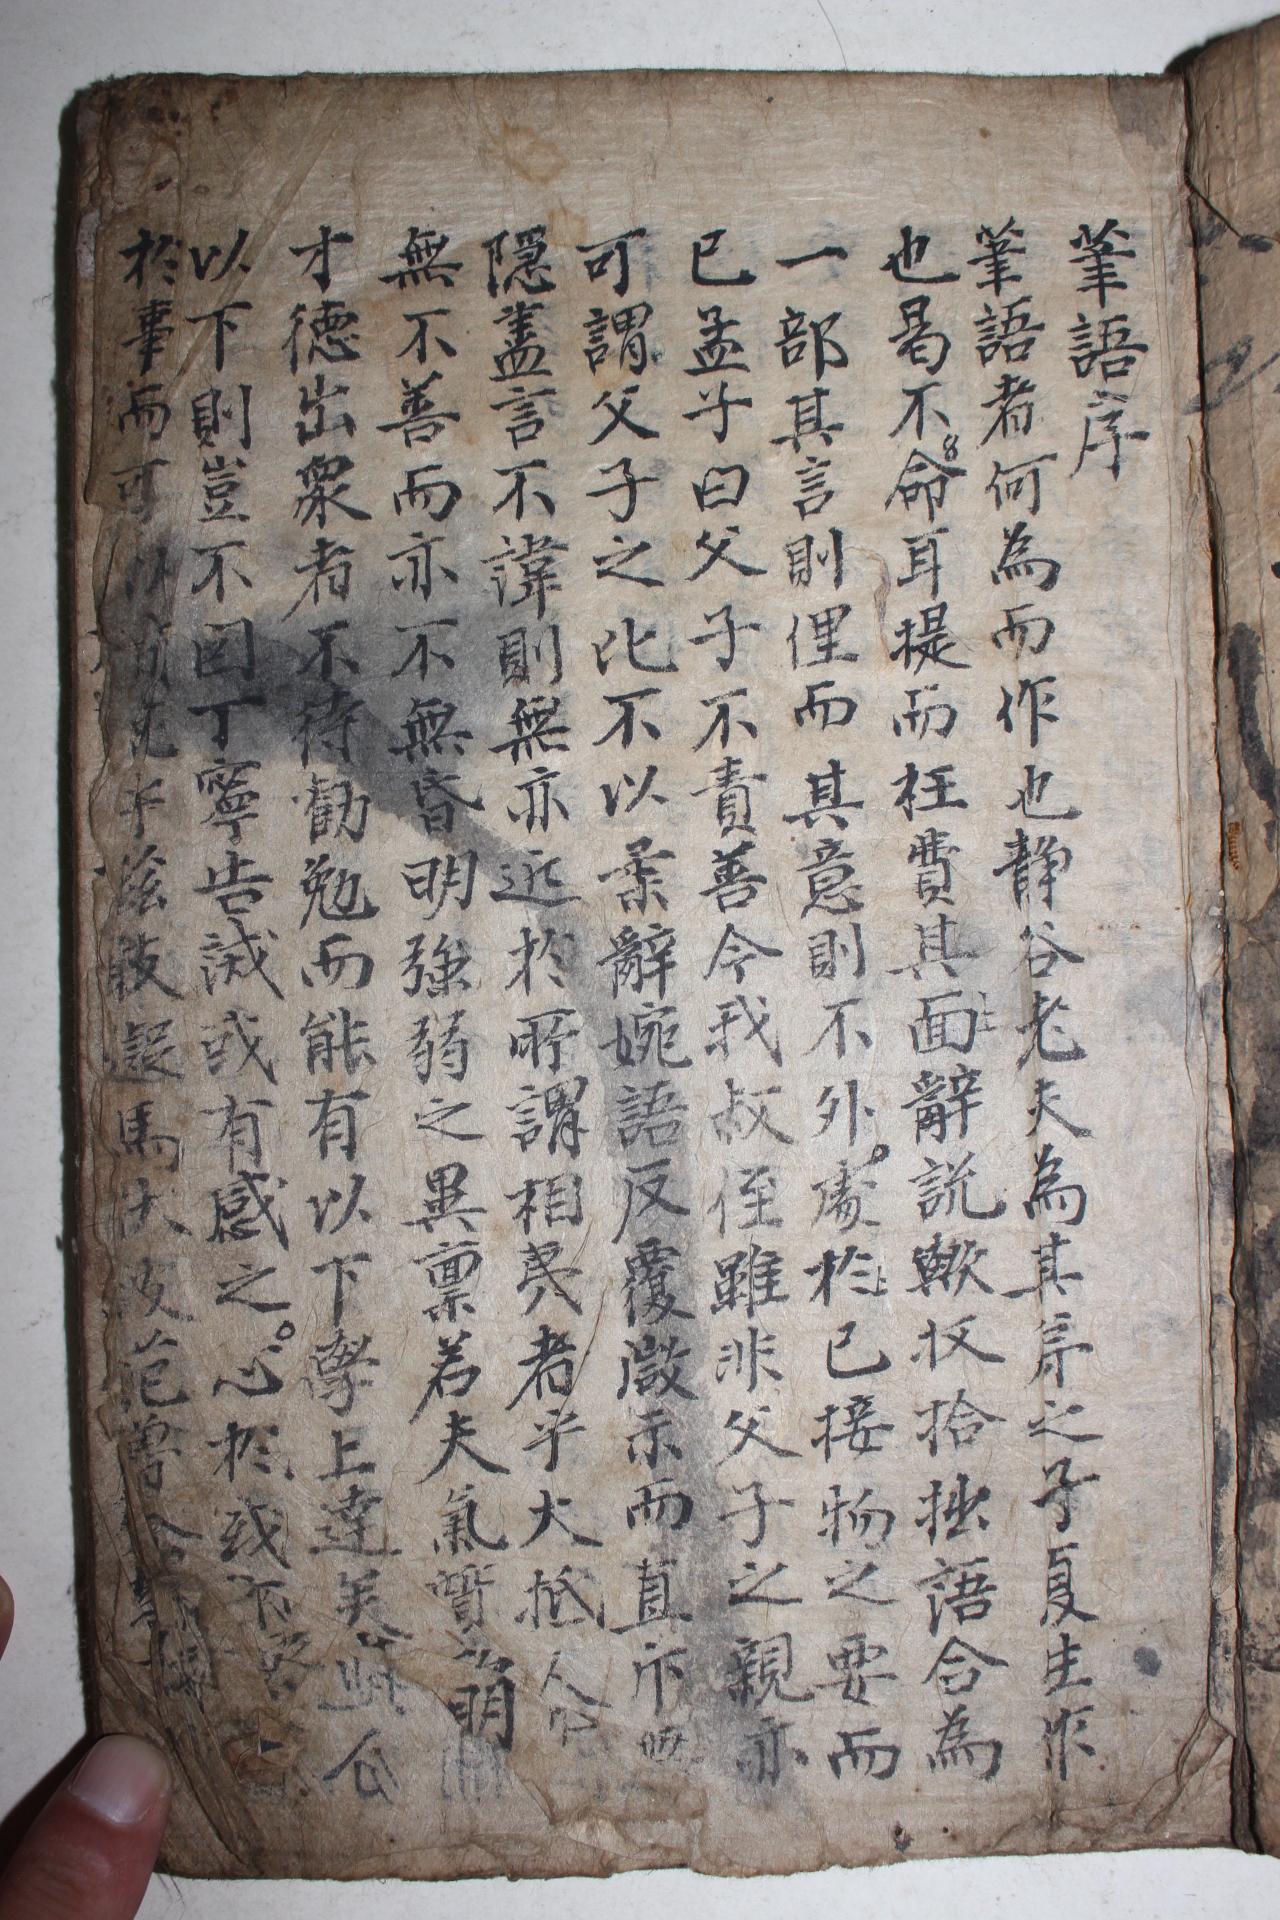 筆語序
筆語者何為而作也靜谷老夫為其宗之子夏生作
也曷不命耳提而枉費其面辭說輙收拾拙語合為
一部其言則俚而其意則不外處於已接物之要而
已孟子曰父子不責善今我叔侄雖非父子之親亦
可謂父子之比不以柔辭婉語反覆啟示而直斥無
隱盡言不諱則無亦近於所謂相夷者乎大抵人性
無不善而亦不無昏明強弱之異禀若夫氣質清明
才德出衆者不待勸勉而能有以下學上達矣
以下則豈不因丁寧告誡或有感之心於或
於事而可